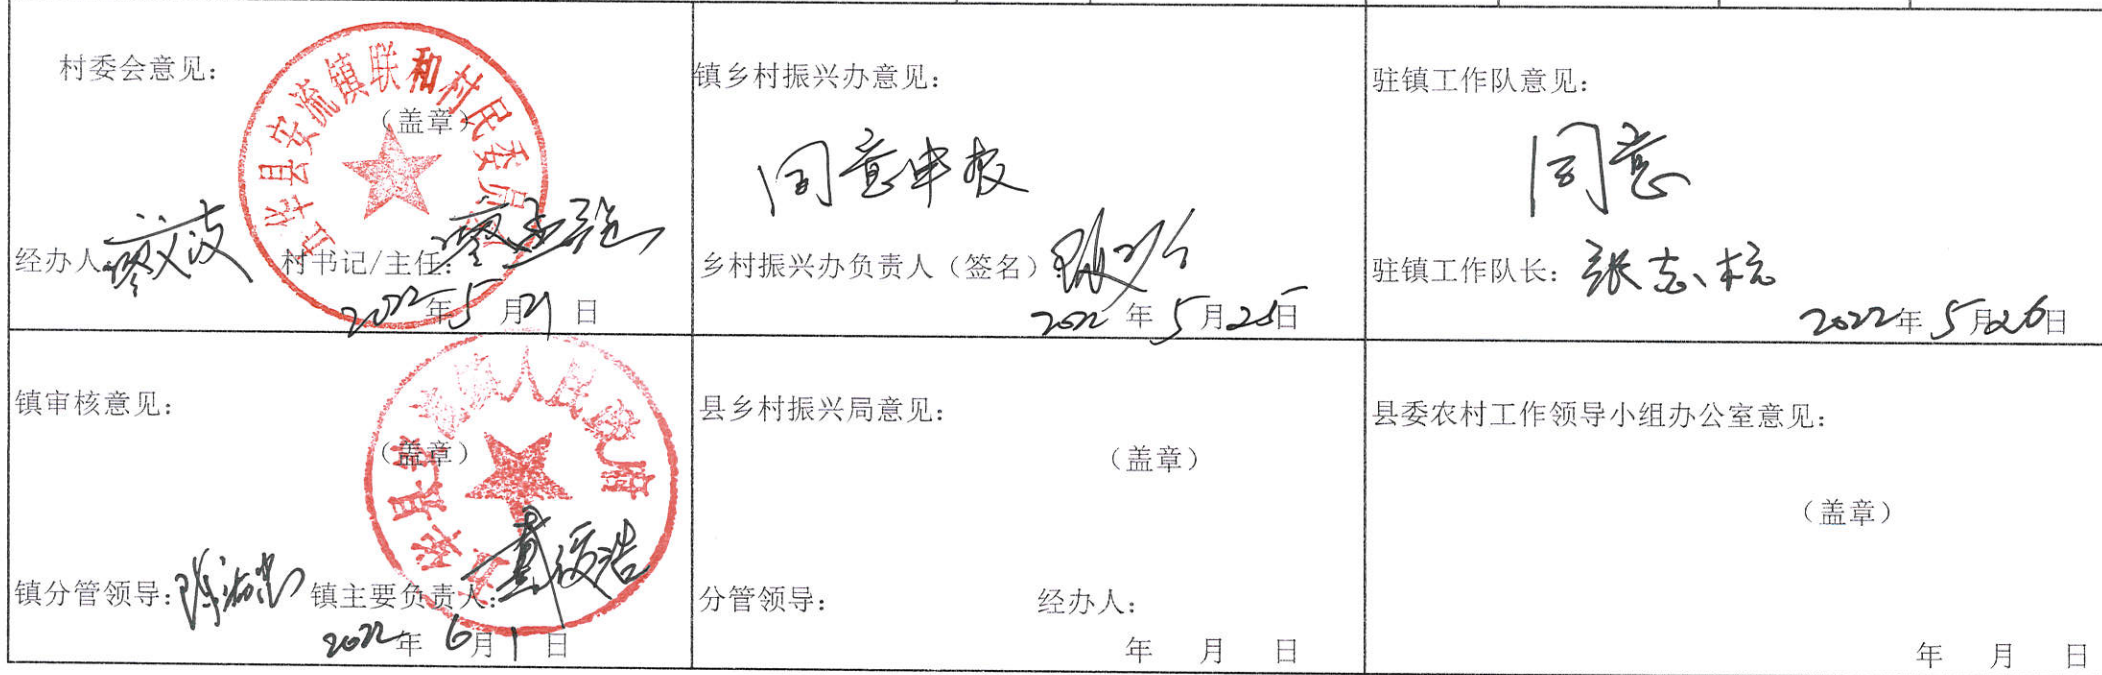 村委会意见：
五华县安流镇联和村民委员会
（盖章）
经办人：廖文波 村书记/主任：廖
2022年5月21日
镇乡村振兴办意见：
同意申报
乡村振兴办负责人（签名）
2022年5月25日
驻镇工作队意见：
同意
驻镇工作队长：张志标
2022年5月26日
镇审核意见：
五华县安流镇人民政府
（盖章）
镇分管领导： 镇主要负责人：
2022年6月1日
县乡村振兴局意见：
（盖章）
分管领导： 经办人：
年 月 日
县委农村工作领导小组办公室意见：
（盖章）
年 月 日